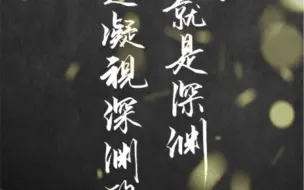 就是深渊
凝视深渊